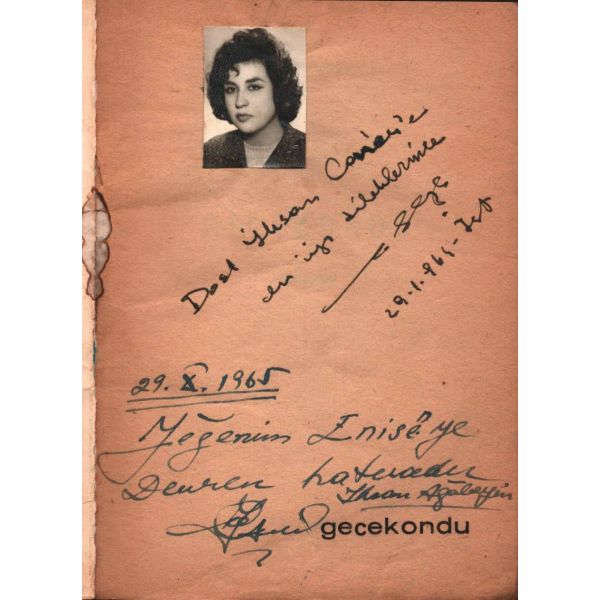 Dost İhsan
en iyi dileklerimle
29.X.1965
Yeğenim Enise'ye
Devren hatıradır
İhsan Ağabeyin
gecekondu